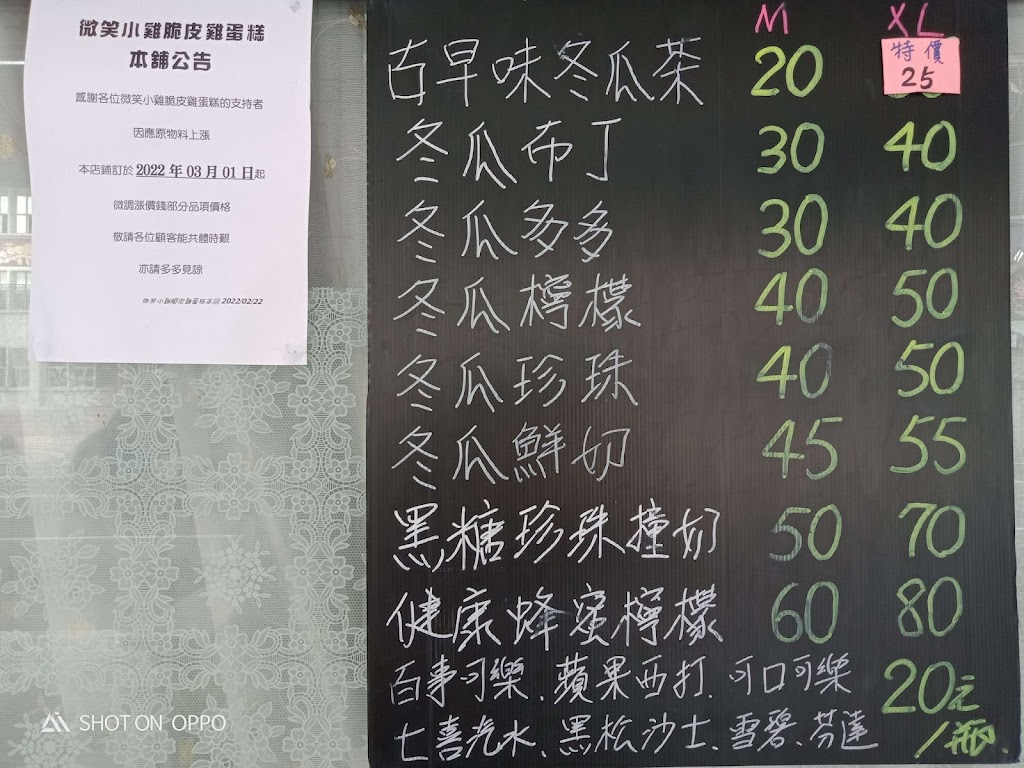 微笑小雞脆皮雞蛋糕
本舖公告
感謝各位微笑小雞脆皮雞蛋糕的支持者
因應原物料上漲
本店鋪訂於 2022 年 03 月 01 日起
微調漲價錢部分品項價格
敬請各位顧客能共體時艱
亦請多多見諒
微笑小雞脆皮雞蛋糕本舖 2022/02/22
M XL
古早味冬瓜茶 20 特價 25
冬瓜布丁 30 40
冬瓜多多 30 40
冬瓜檸檬 40 50
冬瓜珍珠 40 50
冬瓜鮮奶 45 55
黑糖珍珠撞奶 50 70
健康蜂蜜檸檬 60 80
百事可樂、蘋果西打、可口可樂 20元
七喜汽水、黑松沙士、雪碧、芬達 /瓶
SHOT ON OPPO